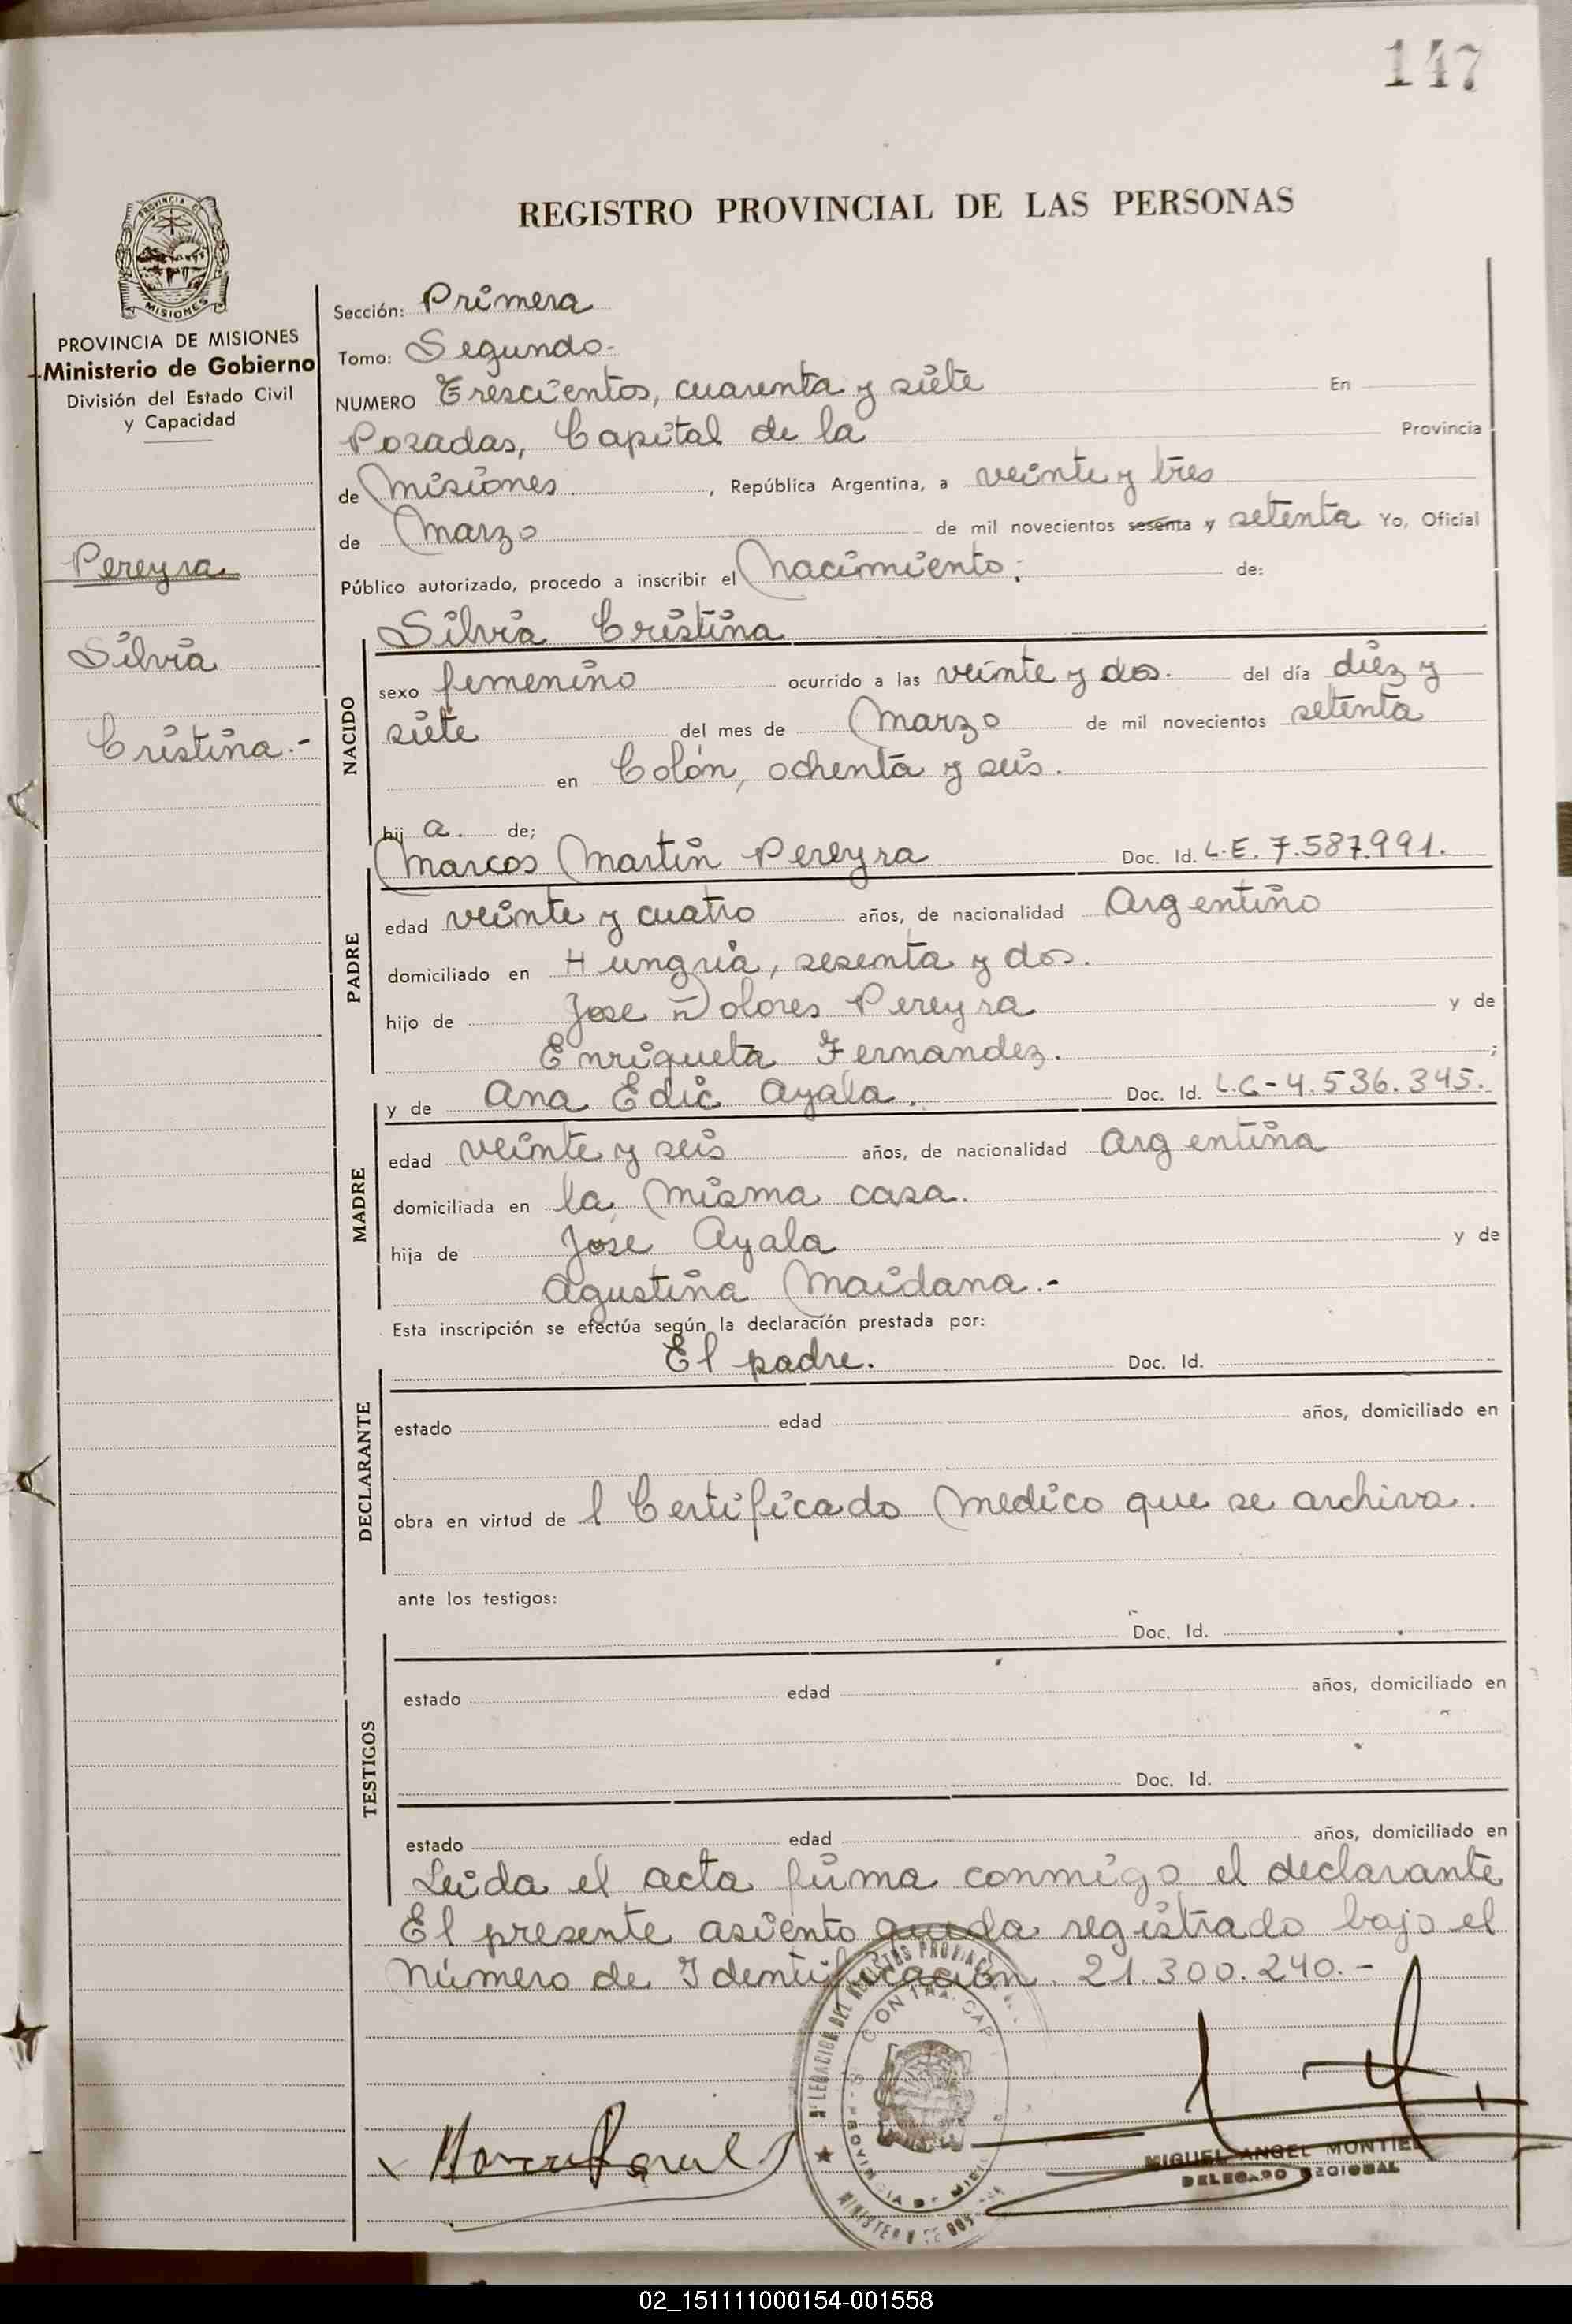 147
REGISTRO PROVINCIAL DE LAS PERSONAS
PROVINCIA DE MISIONES
Ministerio de Gobierno
División del Estado Civil
y Capacidad
Pereyra
Silvia
Cristina.-
Sección: Primera
Tomo: Segundo-
NUMERO Trescientos, cuarenta y siete En
Posadas, Capital de la Provincia
de Misiones , República Argentina, a veinte y tres
de Marzo de mil novecientos sesenta y setenta Yo, Oficial
Público autorizado, procedo a inscribir el Nacimiento: de:
Silvia Cristina
NACIDO
sexo femenino ocurrido a las veinte y dos. del día diez y
siete del mes de Marzo de mil novecientos setenta
en Colón, ochenta y seis.
hij a. de;
Marcos Martin Pereyra Doc. Id. L.E. 7.587.991.
PADRE
edad veinte y cuatro años, de nacionalidad Argentino
domiciliado en Hungria, sesenta y dos.
hijo de Jose Dolores Pereyra y de
Enriqueta Fernandez. ;
y de Ana Edic Ayala. Doc. Id. L.C-4.536.345.
MADRE
edad veinte y seis años, de nacionalidad Argentina
domiciliada en la misma casa.
hija de José Ayala y de
Agustina Maidana.-
Esta inscripción se efectúa según la declaración prestada por:
El padre. Doc. Id.
DECLARANTE
estado edad años, domiciliado en
obra en virtud de l Certificado Medico que se archiva.
ante los testigos:
Doc. Id.
TESTIGOS
estado edad años, domiciliado en
Doc. Id.
estado edad años, domiciliado en
Leida el acta firma conmigo el declarante
El presente asiento queda registrado bajo el
Número de Identificación 21.300.240.-
MIGUEL ANGEL MONTIEL
DELEGADO REGIONAL
02_151111000154-001558